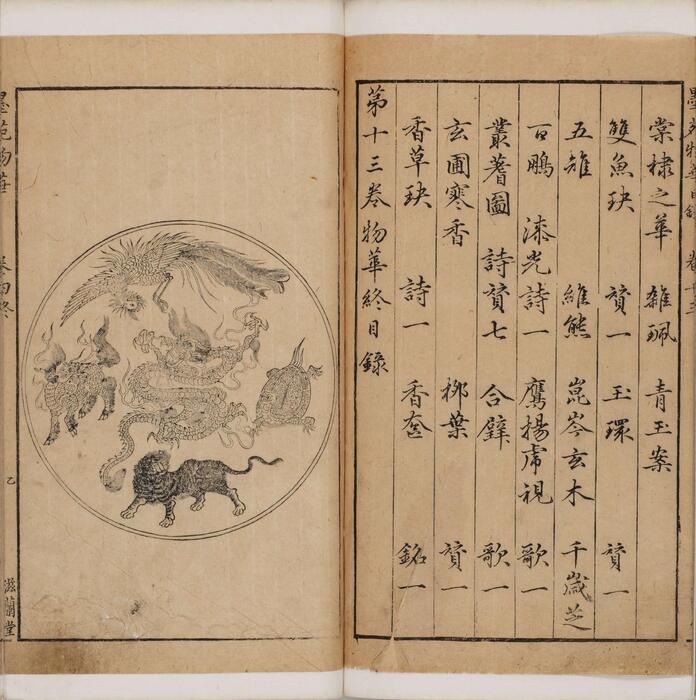 棠棣之華 雜珮 青玉案
雙魚玦 贊一 玉環 贊一
五雉 維熊 崑岑玄木 千歲芝
百鵬 漆光詩一 鷹揚虎視 歌一
叢蓍圖 詩贊七 合璧 歌一
玄圃寒香 柳葉 贊一
香草玦 詩一 香奩 銘一
第十三卷物華終目錄
墨苑物華 卷四終 乙 滋蘭堂